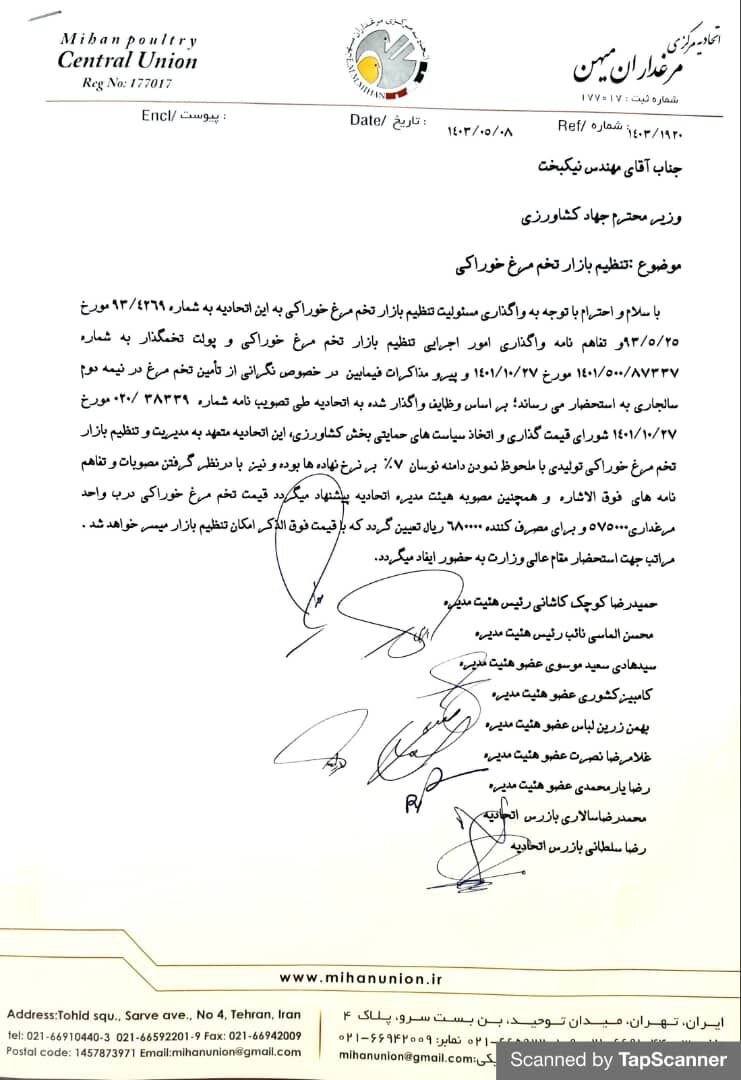 Mihan poultry
Central Union
Reg No: 177017
اتحادیه مرکزی
مرغداران میهن
شماره ثبت : ۱۷۷۰۱۷
Encl/ پیوست :
Date/ تاریخ : ۱۴۰۳/۰۵/۰۸
Ref/ شماره : ۱۴۰۳/۱۹۲۰
جناب آقای مهندس نیکبخت
وزیر محترم جهاد کشاورزی
موضوع :تنظیم بازار تخم مرغ خوراکی
با سلام و احترام با توجه به واگذاری مسئولیت تنظیم بازار تخم مرغ خوراکی به این اتحادیه به شماره ۹۳/۴۲۶۹ مورخ
۹۳/۵/۲۵و تفاهم نامه واگذاری امور اجرایی تنظیم بازار تخم مرغ خوراکی و پولت تخمگذار به شماره
۱۴۰۱/۵۰۰/۸۷۳۳۷ مورخ ۱۴۰۱/۱۰/۲۷ و پیرو مذاکرات فیمابین در خصوص نگرانی از تأمین تخم مرغ در نیمه دوم
سالجاری به استحضار می رساند؛ بر اساس وظایف واگذار شده به اتحادیه طی تصویب نامه شماره ۰۲۰/ ۳۸۳۳۹ مورخ
۱۴۰۱/۱۰/۲۷ شورای قیمت گذاری و اتخاذ سیاست های حمایتی بخش کشاورزی، این اتحادیه متعهد به مدیریت و تنظیم بازار
تخم مرغ خوراکی تولیدی با ملحوظ نمودن دامنه نوسان ۷٪ بر نرخ نهاده ها بوده و نیز با درنظر گرفتن مصوبات و تفاهم
نامه های فوق الاشاره و همچنین مصوبه هیئت مدیره اتحادیه پیشنهاد میگردد قیمت تخم مرغ خوراکی درب واحد
مرغداری ۵۷۵۰۰۰ و برای مصرف کننده ۶۸۰۰۰۰ ریال تعیین گردد که با قیمت فوق الذکر امکان تنظیم بازار میسر خواهد شد .
مراتب جهت استحضار مقام عالی وزارت به حضور ایفاد میگردد.
حمیدرضا کوچک کاشانی رئیس هئیت مدیره
محسن الماسی نائب رئیس هئیت مدیره
سیدهادی سعید موسوی عضو هئیت مدیره
کامبیز کشوری عضو هئیت مدیره
بهمن زرین لباس عضو هئیت مدیره
غلامرضا نصرت عضو هئیت مدیره
رضا یارمحمدی عضو هئیت مدیره
محمدرضاسالاری بازرس اتحادیه
رضا سلطانی بازرس اتحادیه
www.mihanunion.ir
Address:Tohid squ., Sarve ave., No 4, Tehran, Iran
tel: 021-66910440-3 021-66592201-9 Fax: 021-66942009
Postal code: 1457873971 Email:mihanunion@gmail.com
ایران، تهران، میدان توحید، بن بست سرو، پلاک ۴
نمابر: ۰۲۱-۶۶۹۴۲۰۰۹
mihanunion@gmail.com
Scanned by TapScanner